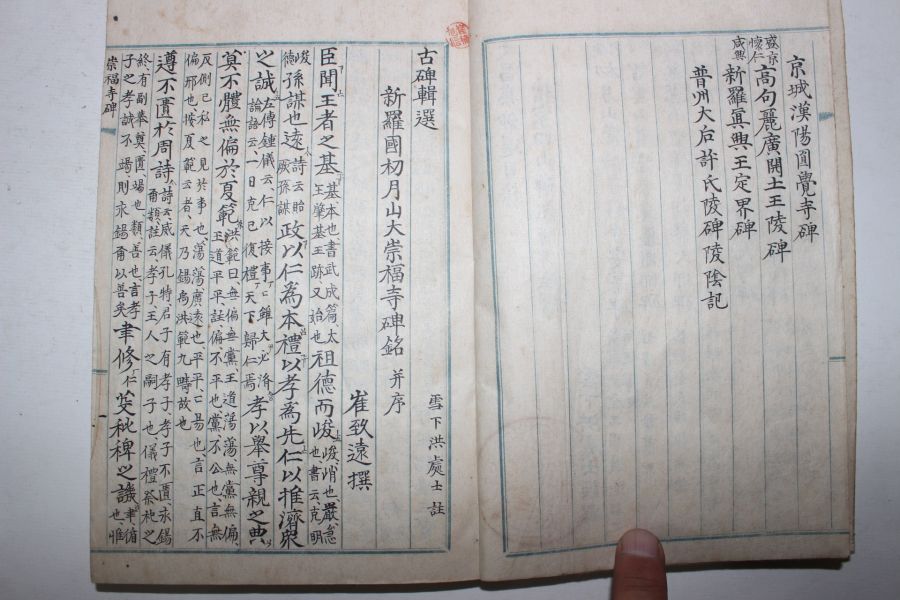 京城漢陽圓覺寺碑
盛京懷仁 高句麗廣開土王陵碑
咸興 新羅眞興王定界碑
普州大后許氏陵碑陵陰記
古碑輯選 雪下洪處士註
新羅國初月山大崇福寺碑銘 幷序
崔致遠撰
臣聞王者之基 基本也書武成篇太王肇基王跡又始也 祖德而峻 峻峭也嚴急也書云克明
峻德 孫謀也遠 詩云貽厥孫謀 政以仁爲本禮以孝爲先仁以推濟衆
之誠 左傳鍾儀云仁以接事口雖大必濟論語云一日克己復禮天下歸仁焉 孝以擧尊親之典
莫不體無偏於夏範 洪範曰無偏無黨王道蕩蕩無黨無偏王道平平註偏不平也黨不公也言無
反側已私之見於事也蕩蕩廣遠也平平口易也言正直不偏邪也按夏範云者天乃錫禹洪範九疇故也
遵不匱於周詩 詩云威儀孔特君子有孝子孝子不匱永錫甭類註云孝子主人之嗣子也儀禮祭祀之
終有副奉奠匱竭也類善也言孝子之孝誠不竭則永錫甭以善矣 聿修 仁 芟秕稗之譏 聿循也惟
崇福寺碑
一